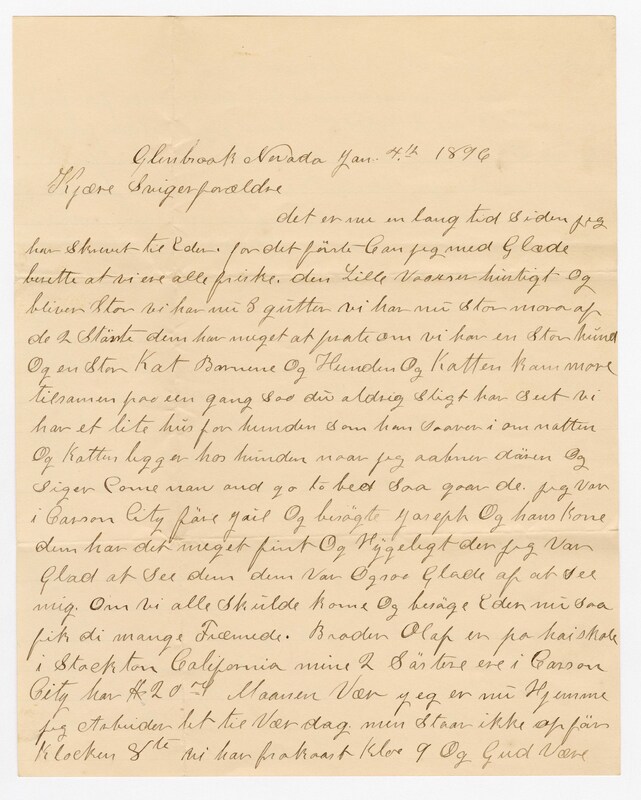 Glenbrook Nevada Jan. 4th 1896
Kjære Svigerforældre
det er nu en lang tid siden jeg
har Skrevet til Eder. for det förste Can jeg med Glæde
berette at vi ere alle friske. den Lille Voxser hurtigt Og
bliver Stor vi har nu 3 gutter vi har nu Stor mora af
de 2 Störste dem har meget at prate om vi har en Stor hund
Og en Stor Kat Barnene Og Hunden Og Katten kan more
tilsamen paa een gang Saa du aldrig Sligt har Seet vi
har et lite hus for hunden Som han Saaver i om natten
Og Katten ligger hos hunden naar jeg aabner dören Og
Siger Come nau and go to bed Saa gaar de. jeg Var
i Carson City före Jail Og besögte Joseph Og hans Kone
dem har det meget fint Og Hÿgeligt der jeg Var
Glad at See dem dem Var Ogsaa Glade af at See
mig. Om vi alle Skulde kome Og besöge Eder nu Saa
fik di mange Fræmede. Broder Olaf er pa haiskole
i Stockton California mine 2 Söstere ere i Carson
City har 20 Maanen Vær jeg er nu Hjemme
jeg Arbeider lit til Vær dag men Staar ikke op för
Klocken 8te vi har frokaast Kloc 9 Og Gud Være